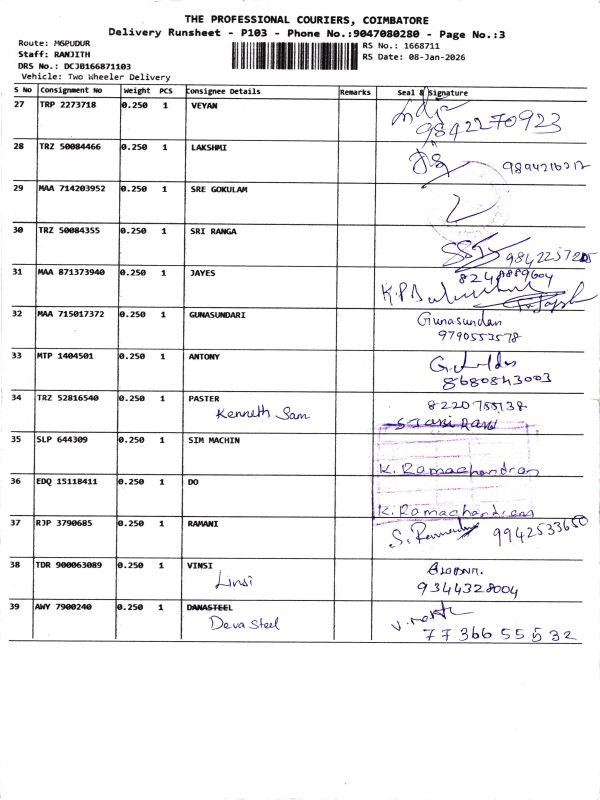 THE PROFESSIONAL COURIERS, COIMBATORE
Delivery Runsheet - P103 - Phone No.:9047080280 - Page No.:3
Route: MGPUDUR
Staff: RANJITH
DRS No.: DCJB166871103
Vehicle: Two Wheeler Delivery
RS No.: 1668711
RS Date: 08-Jan-2026
S No Consignment No Weight PCS Consignee Details Remarks Seal & Signature
27 TRP 2273718 0.250 1 VEYAN
9842270923
28 TRZ 50084466 0.250 1 LAKSHMI
29 MAA 714203952 0.250 1 SRE GOKULAM
30 TRZ 50084355 0.250 1 SRI RANGA
31 MAA 871373940 0.250 1 JAYES
8248889604
32 MAA 715017372 0.250 1 GUNASUNDARI
Gunasundari
9790553578
33 MTP 1404501 0.250 1 ANTONY
8680843003
34 TRZ 52816540 0.250 1 PASTER
Kenneth Sam
8220755138
35 SLP 644309 0.250 1 SIM MACHIN
K. Ramachandran
36 EDQ 15118411 0.250 1 DO
K. Ramachandran
37 RJP 3790685 0.250 1 RAMANI
9942533650
38 TDR 900063089 0.250 1 VINSI
Linsi
9344328004
39 AWY 7900240 0.250 1 DANASTEEL
Deva Steel
7736655532